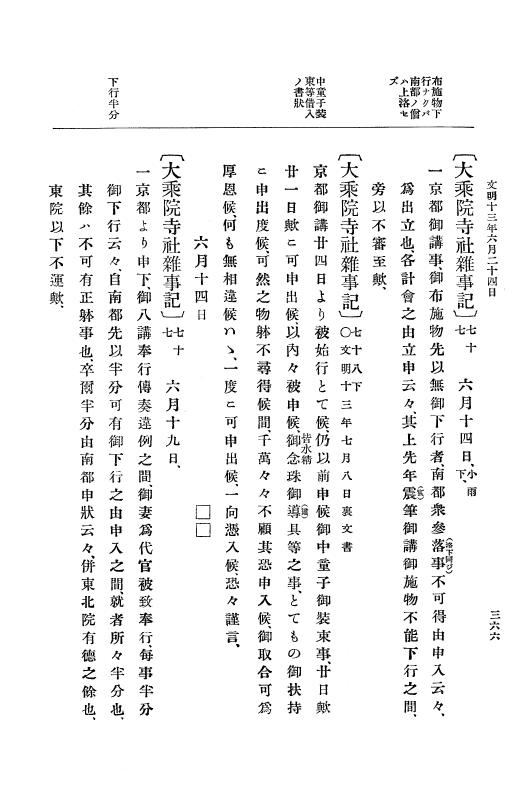 文明十三年六月二十四日
三六六
布施物下
行ナクバ
南都ノ僧
ハ上洛セ
ズ
中童子裝
束等借入
ノ書狀
下行半分
〔大乘院寺社雜事記〕七十七 六月十四日、小雨下、
一京都御講事、御布施物先以無御下行者、南都衆參落事不可得由申入云々、
爲出立也、各計會之由立申云々、其上先年震筆御講御施物不能下行之間、
旁以不審至歟、
〔大乘院寺社雜事記〕七十八下 〇文明十三年七月八日裏文書
京都御講廿四日より被始行とて候、仍以前申候御中童子御裝束事、廿日歟
廿一日歟ニ可申出候、以内々被申候、御念珠皆水精御導具等之事、とてもの御扶持
ニ申出度候、可然之物躰不尋得候間、千萬々々不顧其恐申入候、御取合可爲
厚恩候、何も無相違候ハヽ、一度ニ可申出候、一向憑入候、恐々謹言、
六月十四日 □□
〔大乘院寺社雜事記〕七十七 六月十九日、
一京都より申下、御八講奉行傳奏違例之間、御妻爲代官被致奉行、每事半分
御下行云々、自南都先以半分可有御下行之由申入之間、就者所々半分也、
其餘ハ不可有正躰事也、卒爾半分由南都申狀云々、併東北院有德之餘也、
東院以下不運歟、